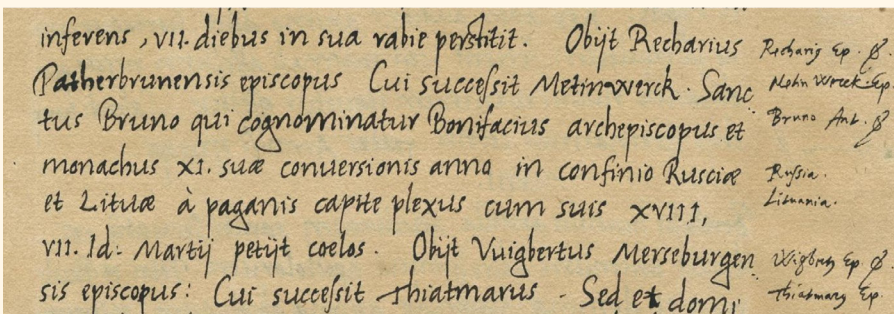 inferens, VII. diebus in sua rabie perstitit. Obijt Recharius
Patherbrunensis episcopus Cui successit Metinwerck. Sanc
tus Bruno qui cognominatur Bonifacius archepiscopus et
monachus XI. suæ conuersionis anno in confinio Rusciæ
et Lituæ à paganis capite plexus cum suis XVIII,
VII. Id: Martij petijt coelos. Obijt Vuigbertus Merseburgen
sis episcopus: Cui successit Thiatmarus. Sed et domi
Ep.
Ep.
Bruno
Russia.
Lituania.
Ep.
Ep.